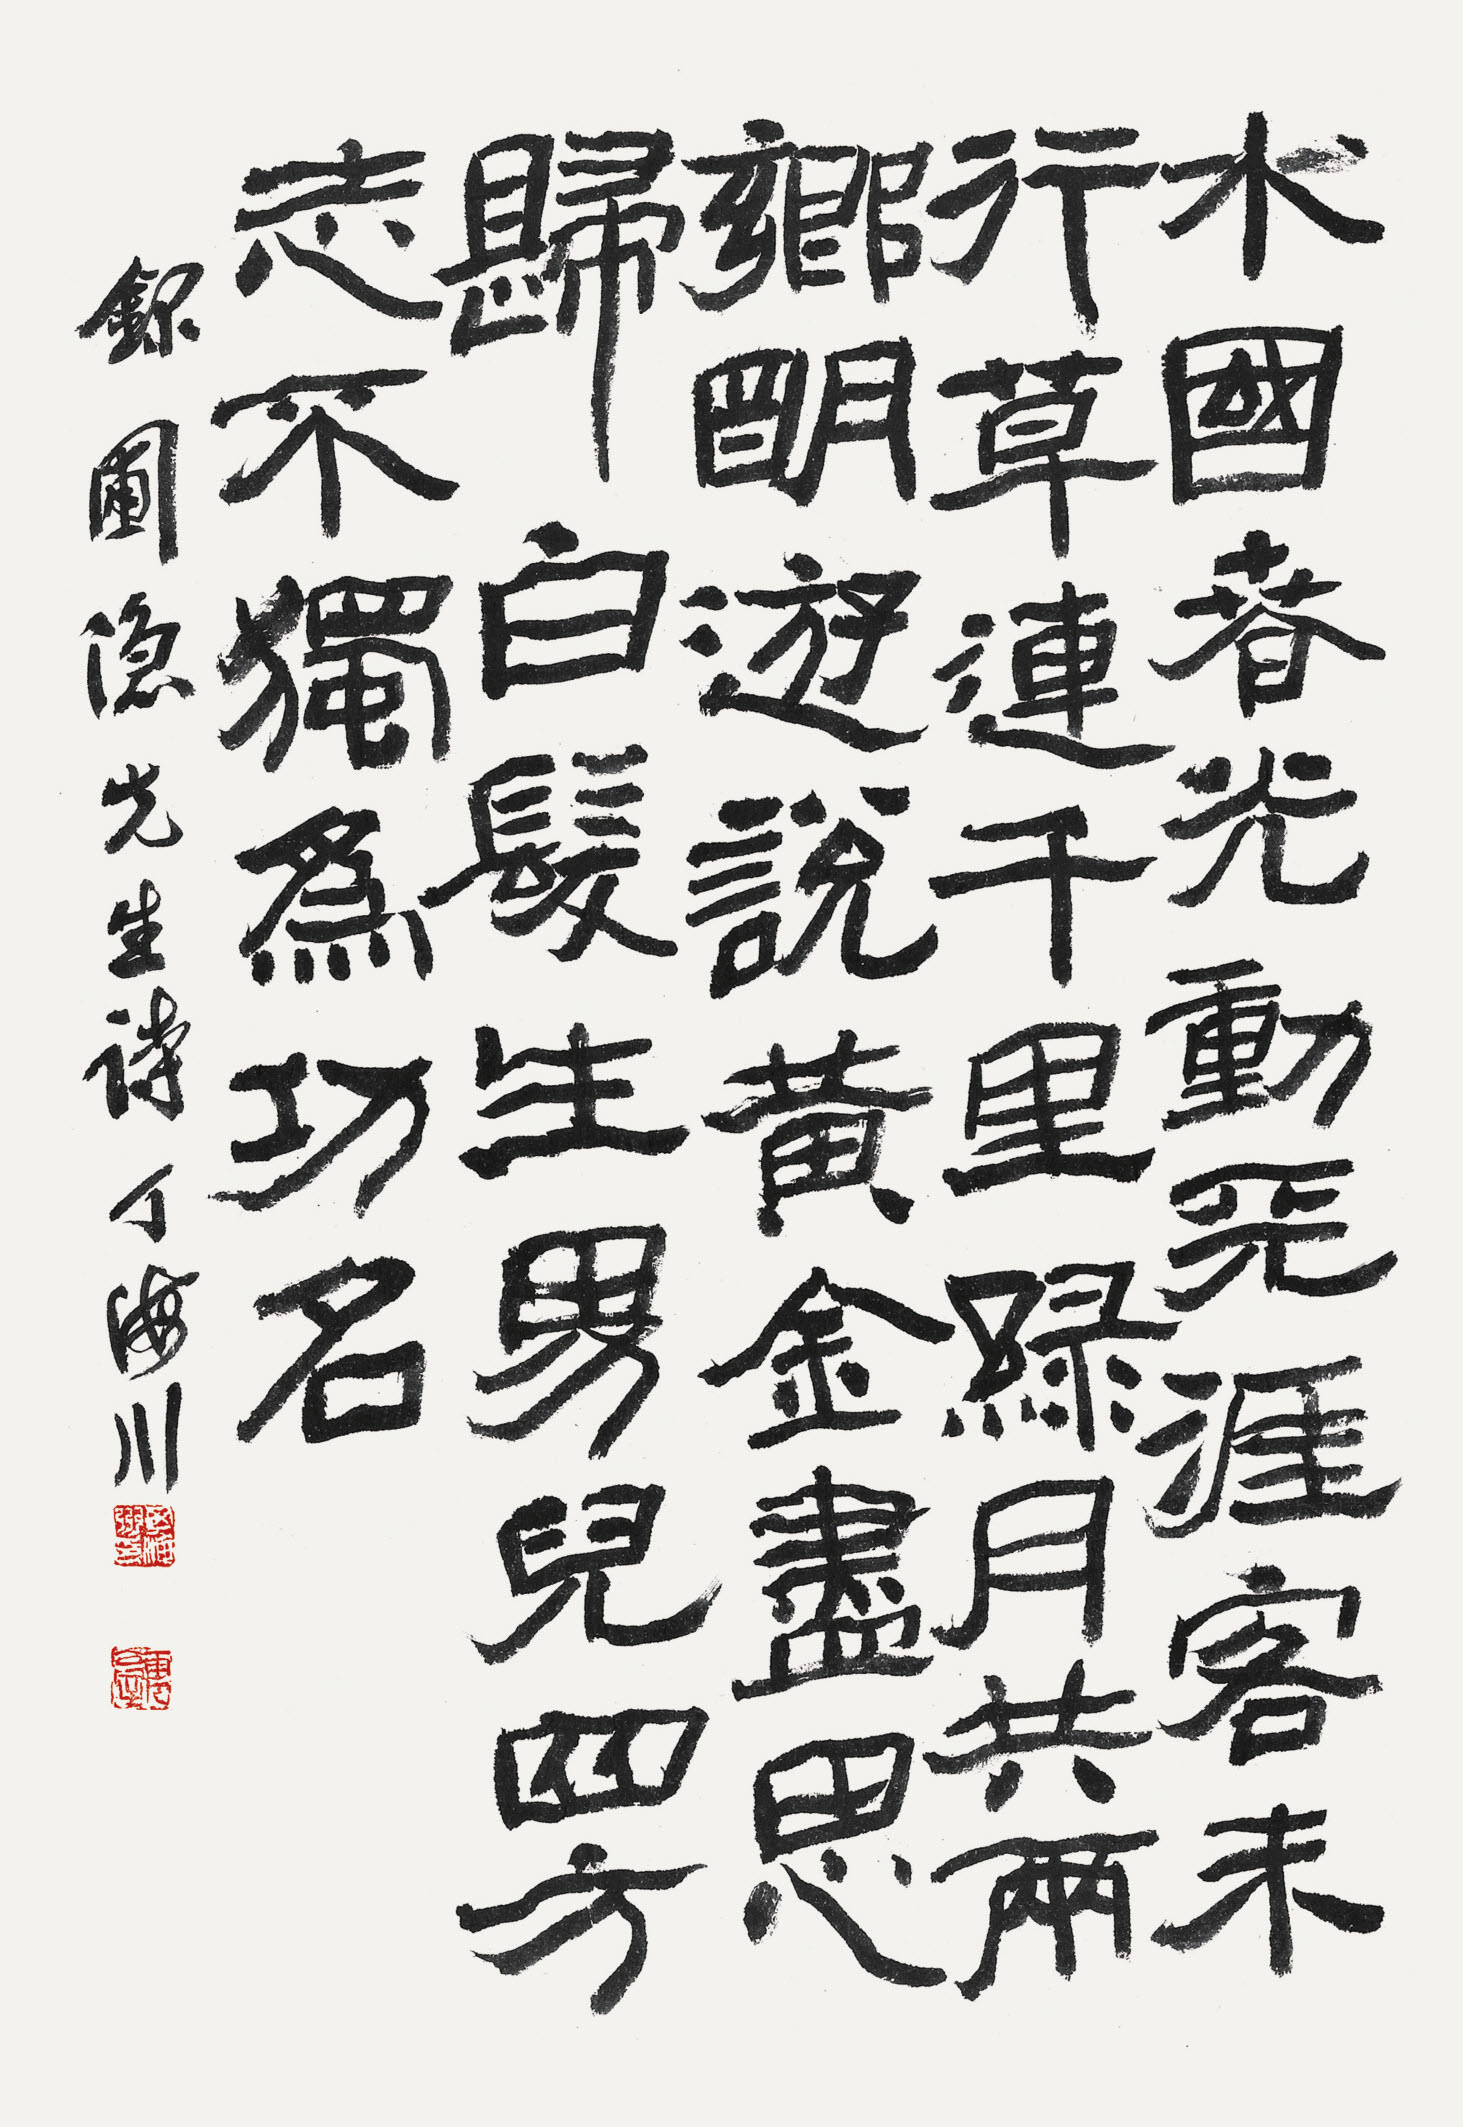 水國春光動天涯客未
行草連千里綠月共兩
鄉明遊說黃金盡思
歸白髮生男兒四方
志不獨爲功名
錄圃隱先生詩丁海川